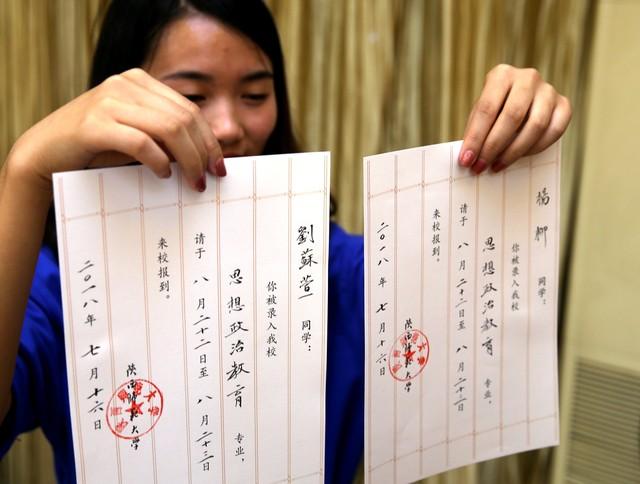 劉蘇萱 同学：
你被录入我校
思想政治教育 专业，
请于 八月二十二日至 八月二十三日
来校报到。
陕西师范大学
二〇一八年 七月十六日
楊柳 同学：
你被录入我校
思想政治教育 专业，
请于 八月二十二日至 八月二十三日
来校报到。
陕西师范大学
二〇一八年 七月十六日